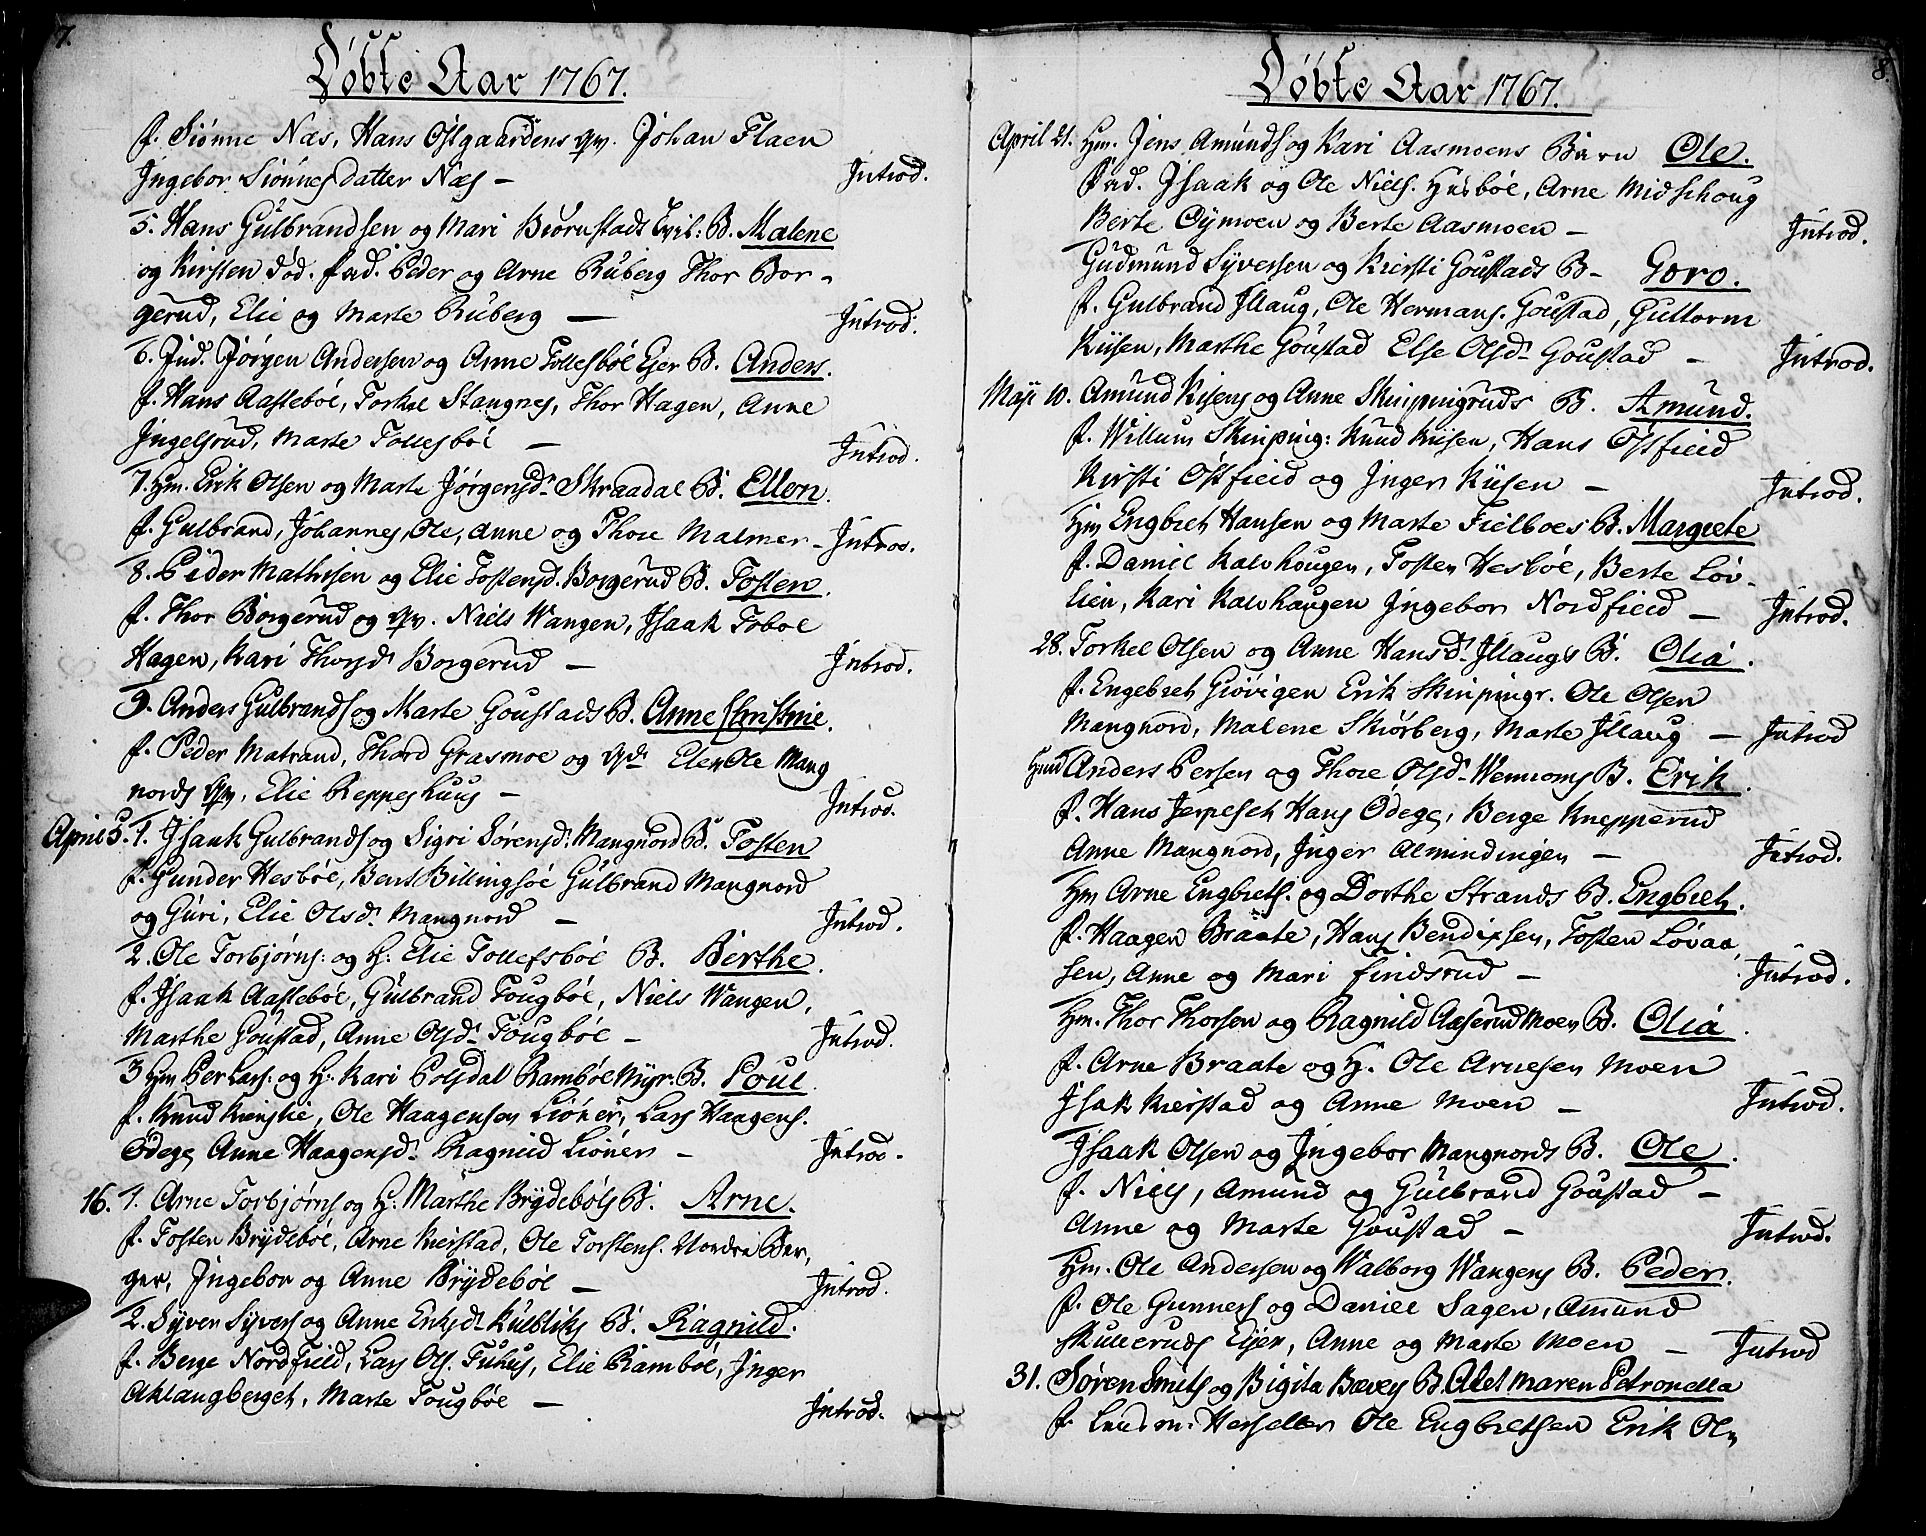 7.
Döbte Aar 1767.
f. Siönne Næs, Hans Ostgaardens qv. Johan Flaen
Ingebor Siönnes datter Næs – Introd.
5. Hans Gulbrandsen og Mari Biørnstads Tvil: B. Malene
og Kirsten död. fad. Peder og Arne Ruberg Thor Bor-
gerud, Elie og Marte Ruberg — Introd.
6. Ind. Jörgen Andersen og Anne Tollesböl Ejer B. Anders.
f. Hans Aasteböl, Torkel Stangnes, Thor Hagen, Anne
Ingelsrud, Marte Tollesböl — Introd.
7. Hm. Erik Olsen og Marte Jörgensd. Skraadal B. Ellen.
f. Gulbrand, Johannes, Ole, Anne og Thore Malmer – Introd.
8. Peder Mathisen og Elie Tostensd. Borgerud B. Tosten.
f. Thor Borgerud og qv. Niels Wangen, Isaak Toboe
Hagen, Kari Thorsd. Borgerud — Introd.
9. Anders Gulbrands og Marte Goustads B. Anne Christine.
f. Peder Matrand, Thord Grasmoe og Elen Ole Mang
nords qv, Elie Reppeshuus – Introd.
April 5. 1. Isaak Gulbrands og Sigri Sörensd. Mangnord B. Tosten
f. Gunder Hesböe, Bent Billingsöe Gulbrand Mangnord
og Guri, Elie Olsd. Mangnord — Introd.
2. Ole Torbjörns: og H: Elie Tollefsböl B. Berthe.
f. Isaak Aasteböl, Gulbrand Tougböl, Niels Wangen,
Marthe Goustad, Anne Olsd. Tougböl – Introd.
3 Hm Per Lars: og H: Kari Polsdal Ramböl Myr. B. Poul.
f. Knud, Ole Haagensen Liöner, Lars Haagens.
Ödege Anne Haagensd. Ragnild Liöner – Introd.
16. 1. Arne Torbjörns og H: Marthe Brydeböls B. Arne.
f. Tosten Brydeböl, Arne Kierstad, Ole Torstens. Nordre Ber,
ger, Ingebor og Anne Brydeböl — Introd.
2. Syver Syvers og Anne Eriksd. Kulbliks B. Ragnild.
f. Berge Nordfield, Lars Ols. Fuhus, Elie Ramböl, Inger
Aklangberget, Marte Tougböl — Introd.
8
Döbte Aar 1767.
April 21. Hm. Jens Amunds og Kari Aasmoens Barn Ole.
Fad. Isaak og Ole Niels. Husböl, Arne Midschoug
Berte Oymoen og Berte Aasmoen – Introd.
Gudmund Syversen og Kiersti Goustads B– Goro.
f. Gulbrand Illaug, Ole Hermans. Goustad, Guttorm
Kiisen, Marthe Goustad Else Olsd. Goustad – Introd.
Maji 10. Amund Kisens og Anne Skinpingruds B. Amund.
f. Willum Skinping: Knud Kiisen, Hans Ostfield
Kirsti Ostfield og Inger Kiisen – Introd.
Hm Engbret Hansen og Marte Fielboes B. Margrete
f. Daniel Kalvhougen, Tosten Hesböl, Berte Löv-
lien, Kari Kalvhaugen Ingebor Nordfield — Introd.
28. Torkel Olsen og Anne Hansd. Illaugs B. Olia.
f. Engebret Giövigen Erik Skinpingr. Ole Olsen
Mangnord, Malene Skiörberg, Marte Illaug — Introd
Anders Persen og Thore Olsd. Wennoms B. Erik.
f. Hans Jerpeset Hans Ödege, Berge Knepperud
Anne Mangnord, Inger Almindingen — Introd.
Hm Arne Engbrets. og Dorthe Strands B. Engbret.
f. Haagen Braate, Hans Bendixsen, Tosten Lövaa,
sen, Anne og Mari Findsrud — Introd.
Hm. Thor Thorsen og Ragnild Aaserud Moen B. Olia.
f. Arne Braate og H. Ole Arnesen Moen
Isak Kierstad og Anne Moen — Introd.
Isaak Olsen og Ingebor Mangnords B. Ole.
f. Niels, Amund og Gulbrand Goustad –
Anne og Marte Goustad – Introd.
Hm. Ole Andersen og Walborg Wangens B. Peder.
f. Ole Gunners og Daniel Sagen, Amund
Skulleruds Eyer, Anne og Marte Moen — Introd
31. Sören Smits og Bigita Bævers B. Alet Maren Petronella
f. Herseller Ole Engbretsen Erik Ol,